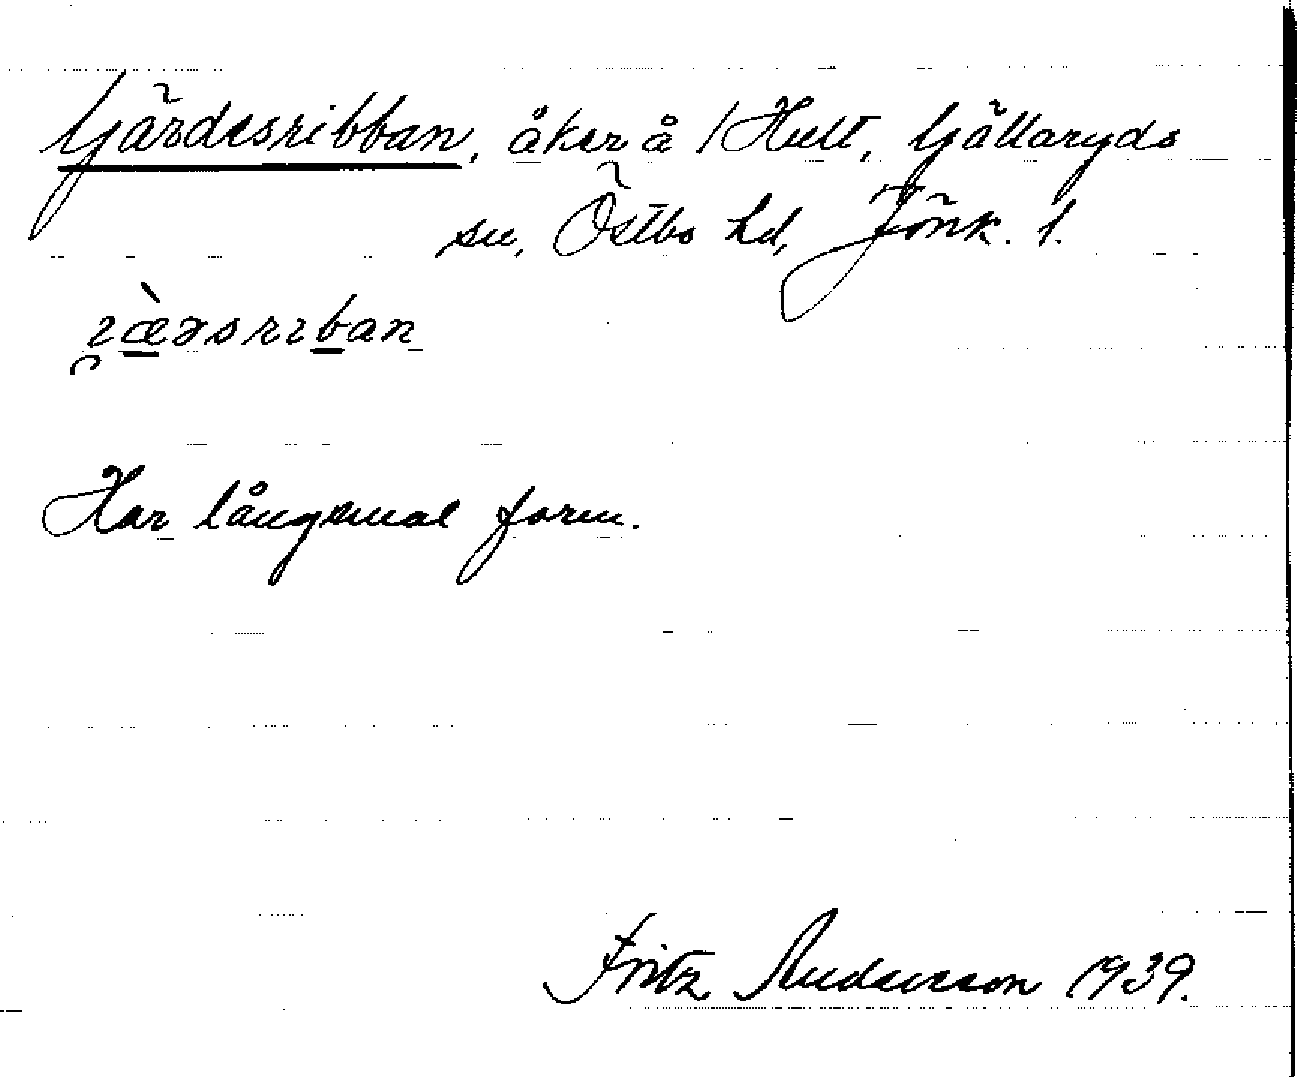 Gärdesribban, åker å /Hult, Gällaryds
sn, Östbo hd, Jönk. l.
Har långsmal form.
Fritz Andersson 1939.